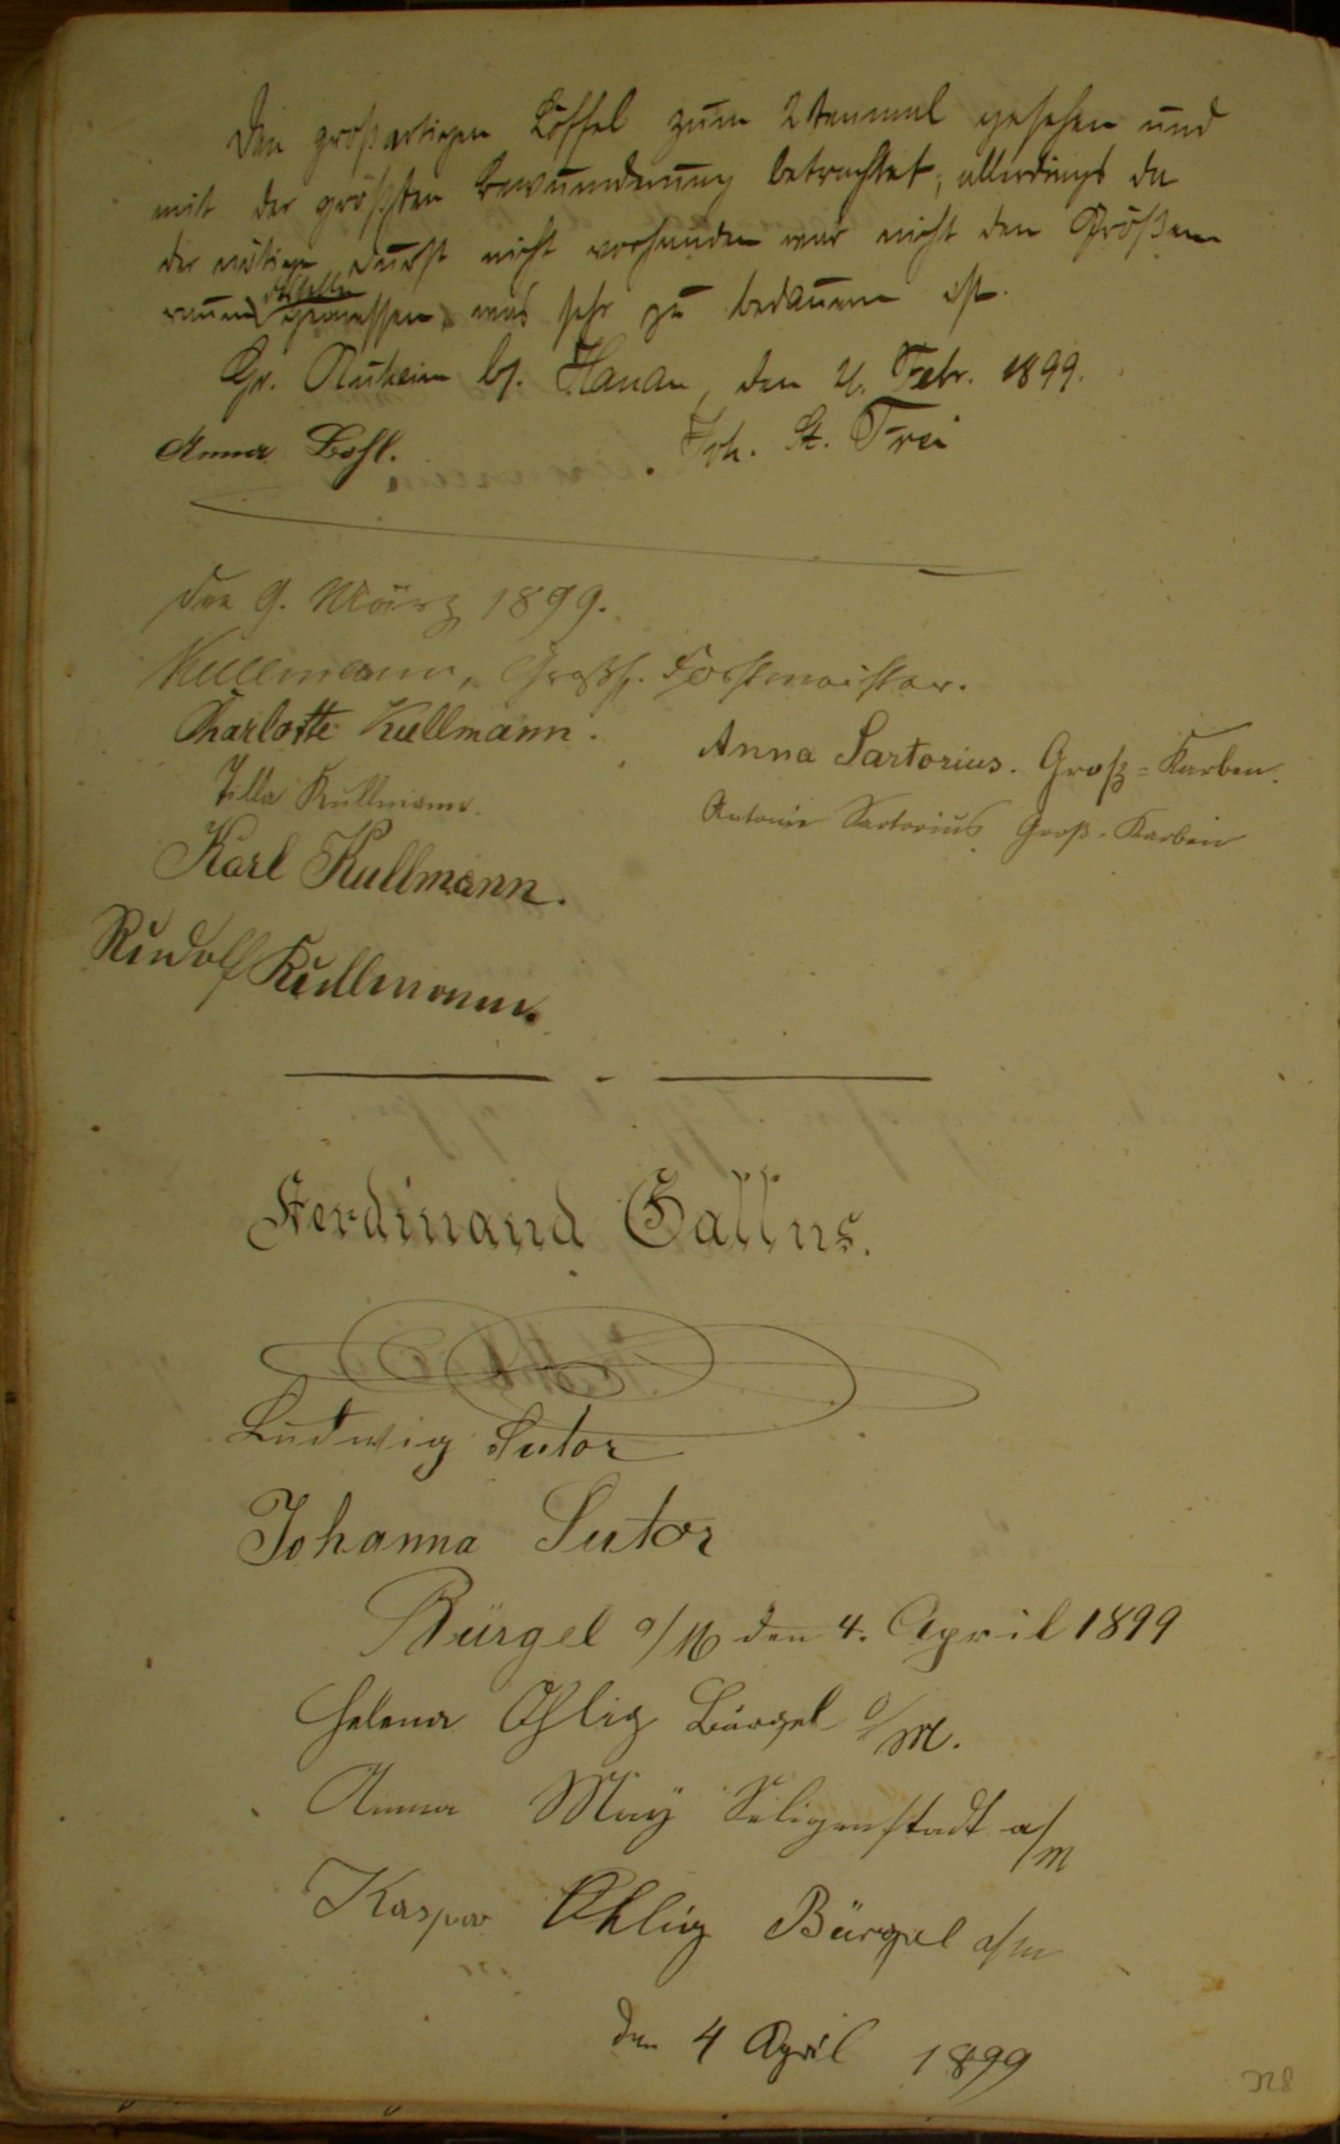 Den großartigen Löffel zum 2tenmal gesehen und
mit der größten Bewunderung betrachtet, allerdings da
der nötige Durst nicht vorhanden war nicht den
desselben
was sehr zu bedauern ist.
Gr. Auheim bj. Hanau, den 21. Febr. 1899.
Anna Bohl. Joh. St. Frei
den 9. März 1899.
Kullmann, Großh. Forstmeister.
Charlotte Kullmann.
Anna Sartorius. Groß-Karben.
Tilla Kullmann.
Antonie Sartorius Groß-Karben
Karl Kullmann.
Rudolf Kullmann.
Ferdinand Gallus.
Ludwig Sutor
Johanna Sutor
Bürgel a/M den 4. April 1899
Helena Ohlig Bürgel a/M.
Anna May Seligenstadt a/M
Kaspar Ohlig Bürgel a/m
den 4 April 1899